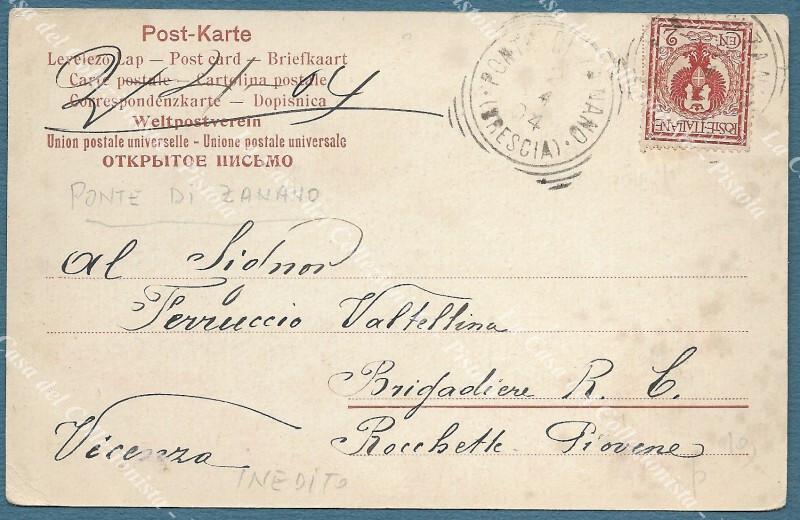 Post-Karte
Levelező Lap — Post card — Briefkaart
Carte postale — Cartolina postale
Correspondenzkarte — Dopisnica
Weltpostverein
Union postale universelle - Unione postale universale
ОТКРЫТОЕ ПИСЬМО
04
PONTE DI ZANANO
PONTE DI ZANANO
(BRESCIA)
4
04
CEN. 2
POSTE ITALIANE
Al Signor
Ferruccio Valtellina
Brigadiere R. C.
Vicenza Rocchette Piovene
INEDITO
La Casa del Collezionista - Pistoia